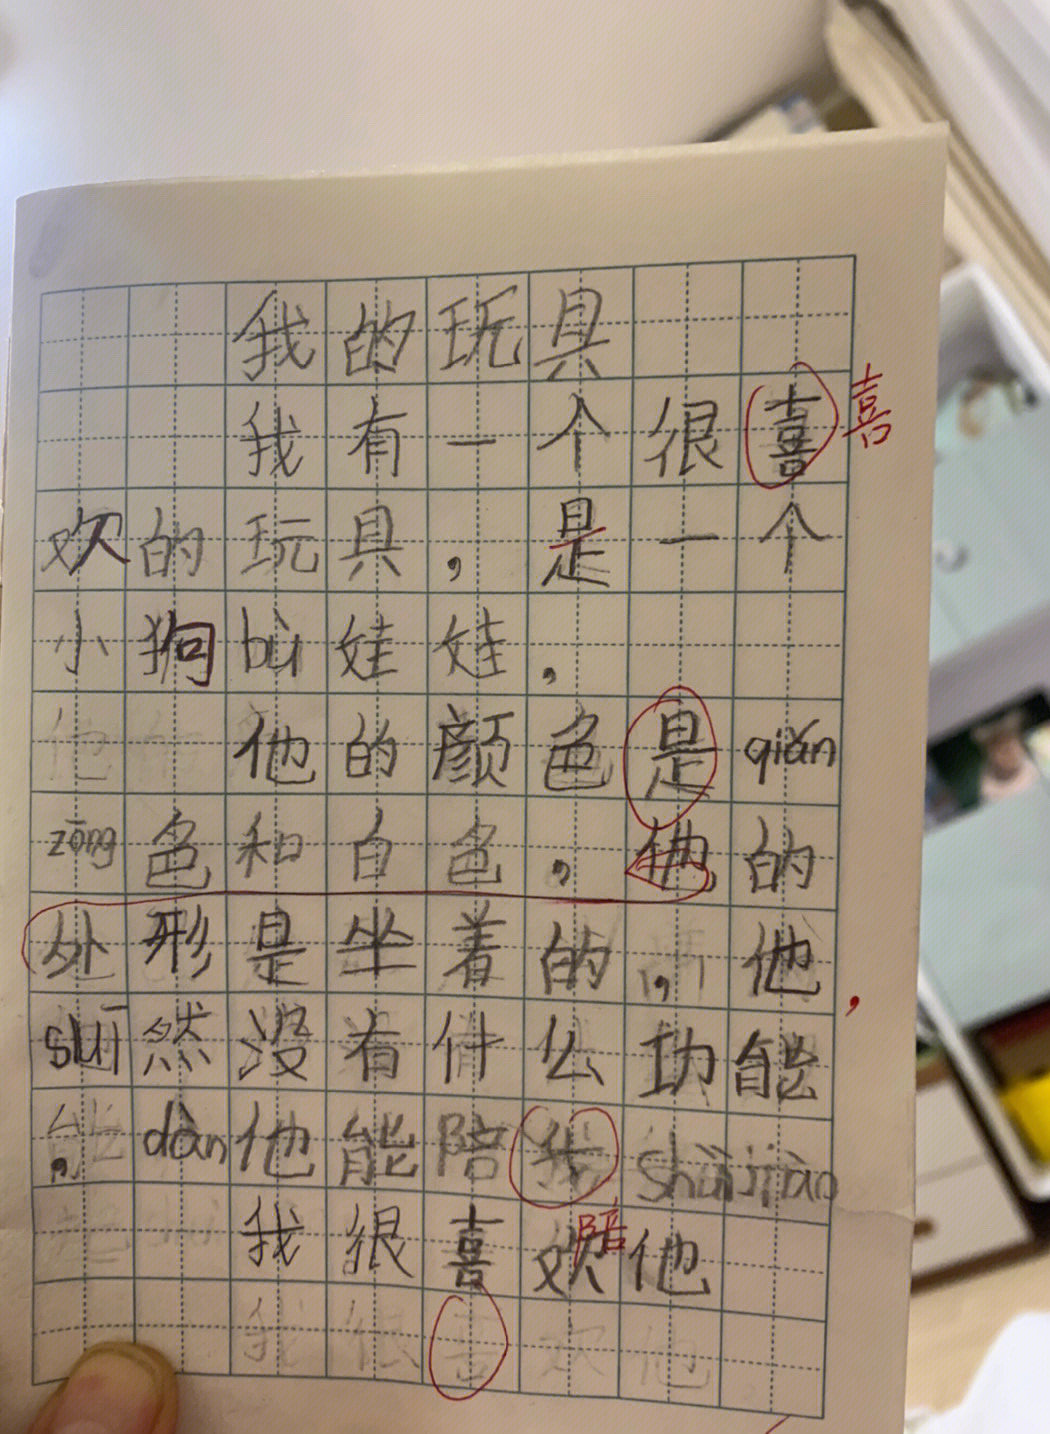 我的玩具
我有一个很喜 喜
欢的玩具，是一个
小狗bù娃娃。
他的颜色是qiǎn
zōng色和白色，他的
外形是坐着的，他，
suī然没有什么功能
，dàn他能陪我shuìjiào
陪
我很喜欢他
我很喜欢他